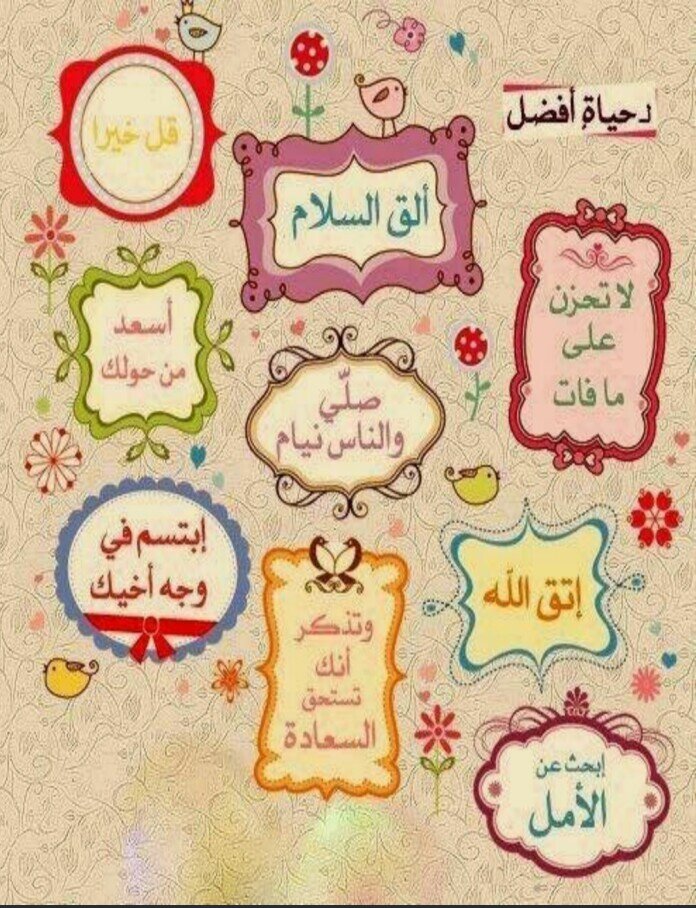 لحياة أفضل
قل خيرا
ألق السلام
لا تحزن
على
ما فات
أسعد
من حولك
صلّي
والناس نيام
إبتسم في
وجه أخيك
وتذكر
أنك
تستحق
السعادة
إتق الله
إبحث عن
الأمل